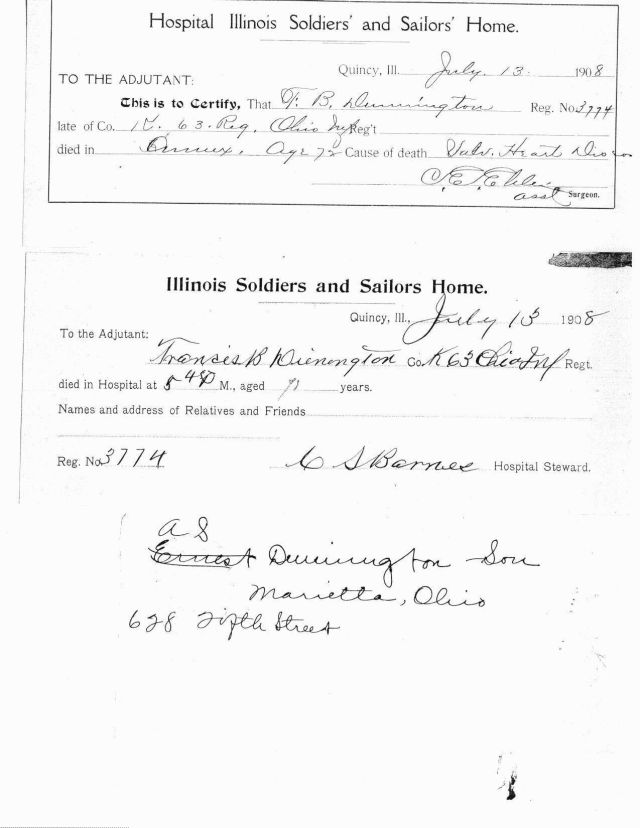 Hospital Illinois Soldiers' and Sailors' Home.
Quincy, Ill. July. 13. 1908
TO THE ADJUTANT:
This is to Certify, That F. B. Dunnington Reg. No. 3774
late of Co. K. 63. Reg. Ohio Inf Reg't
died in Annex. Age 72 Cause of death Valv. Heart Dis
C. E.
asst Surgeon.
Illinois Soldiers and Sailors Home.
Quincy, Ill., July 13 1908
To the Adjutant:
Francis B Dienington Co. K 63 Ohio Inf Regt.
died in Hospital at 5 40 P M., aged years.
Names and address of Relatives and Friends
Reg. No. 3774 C S Barnes Hospital Steward.
A S
Ernest Dunnington Son
Marietta, Ohio
628 Fifth Street